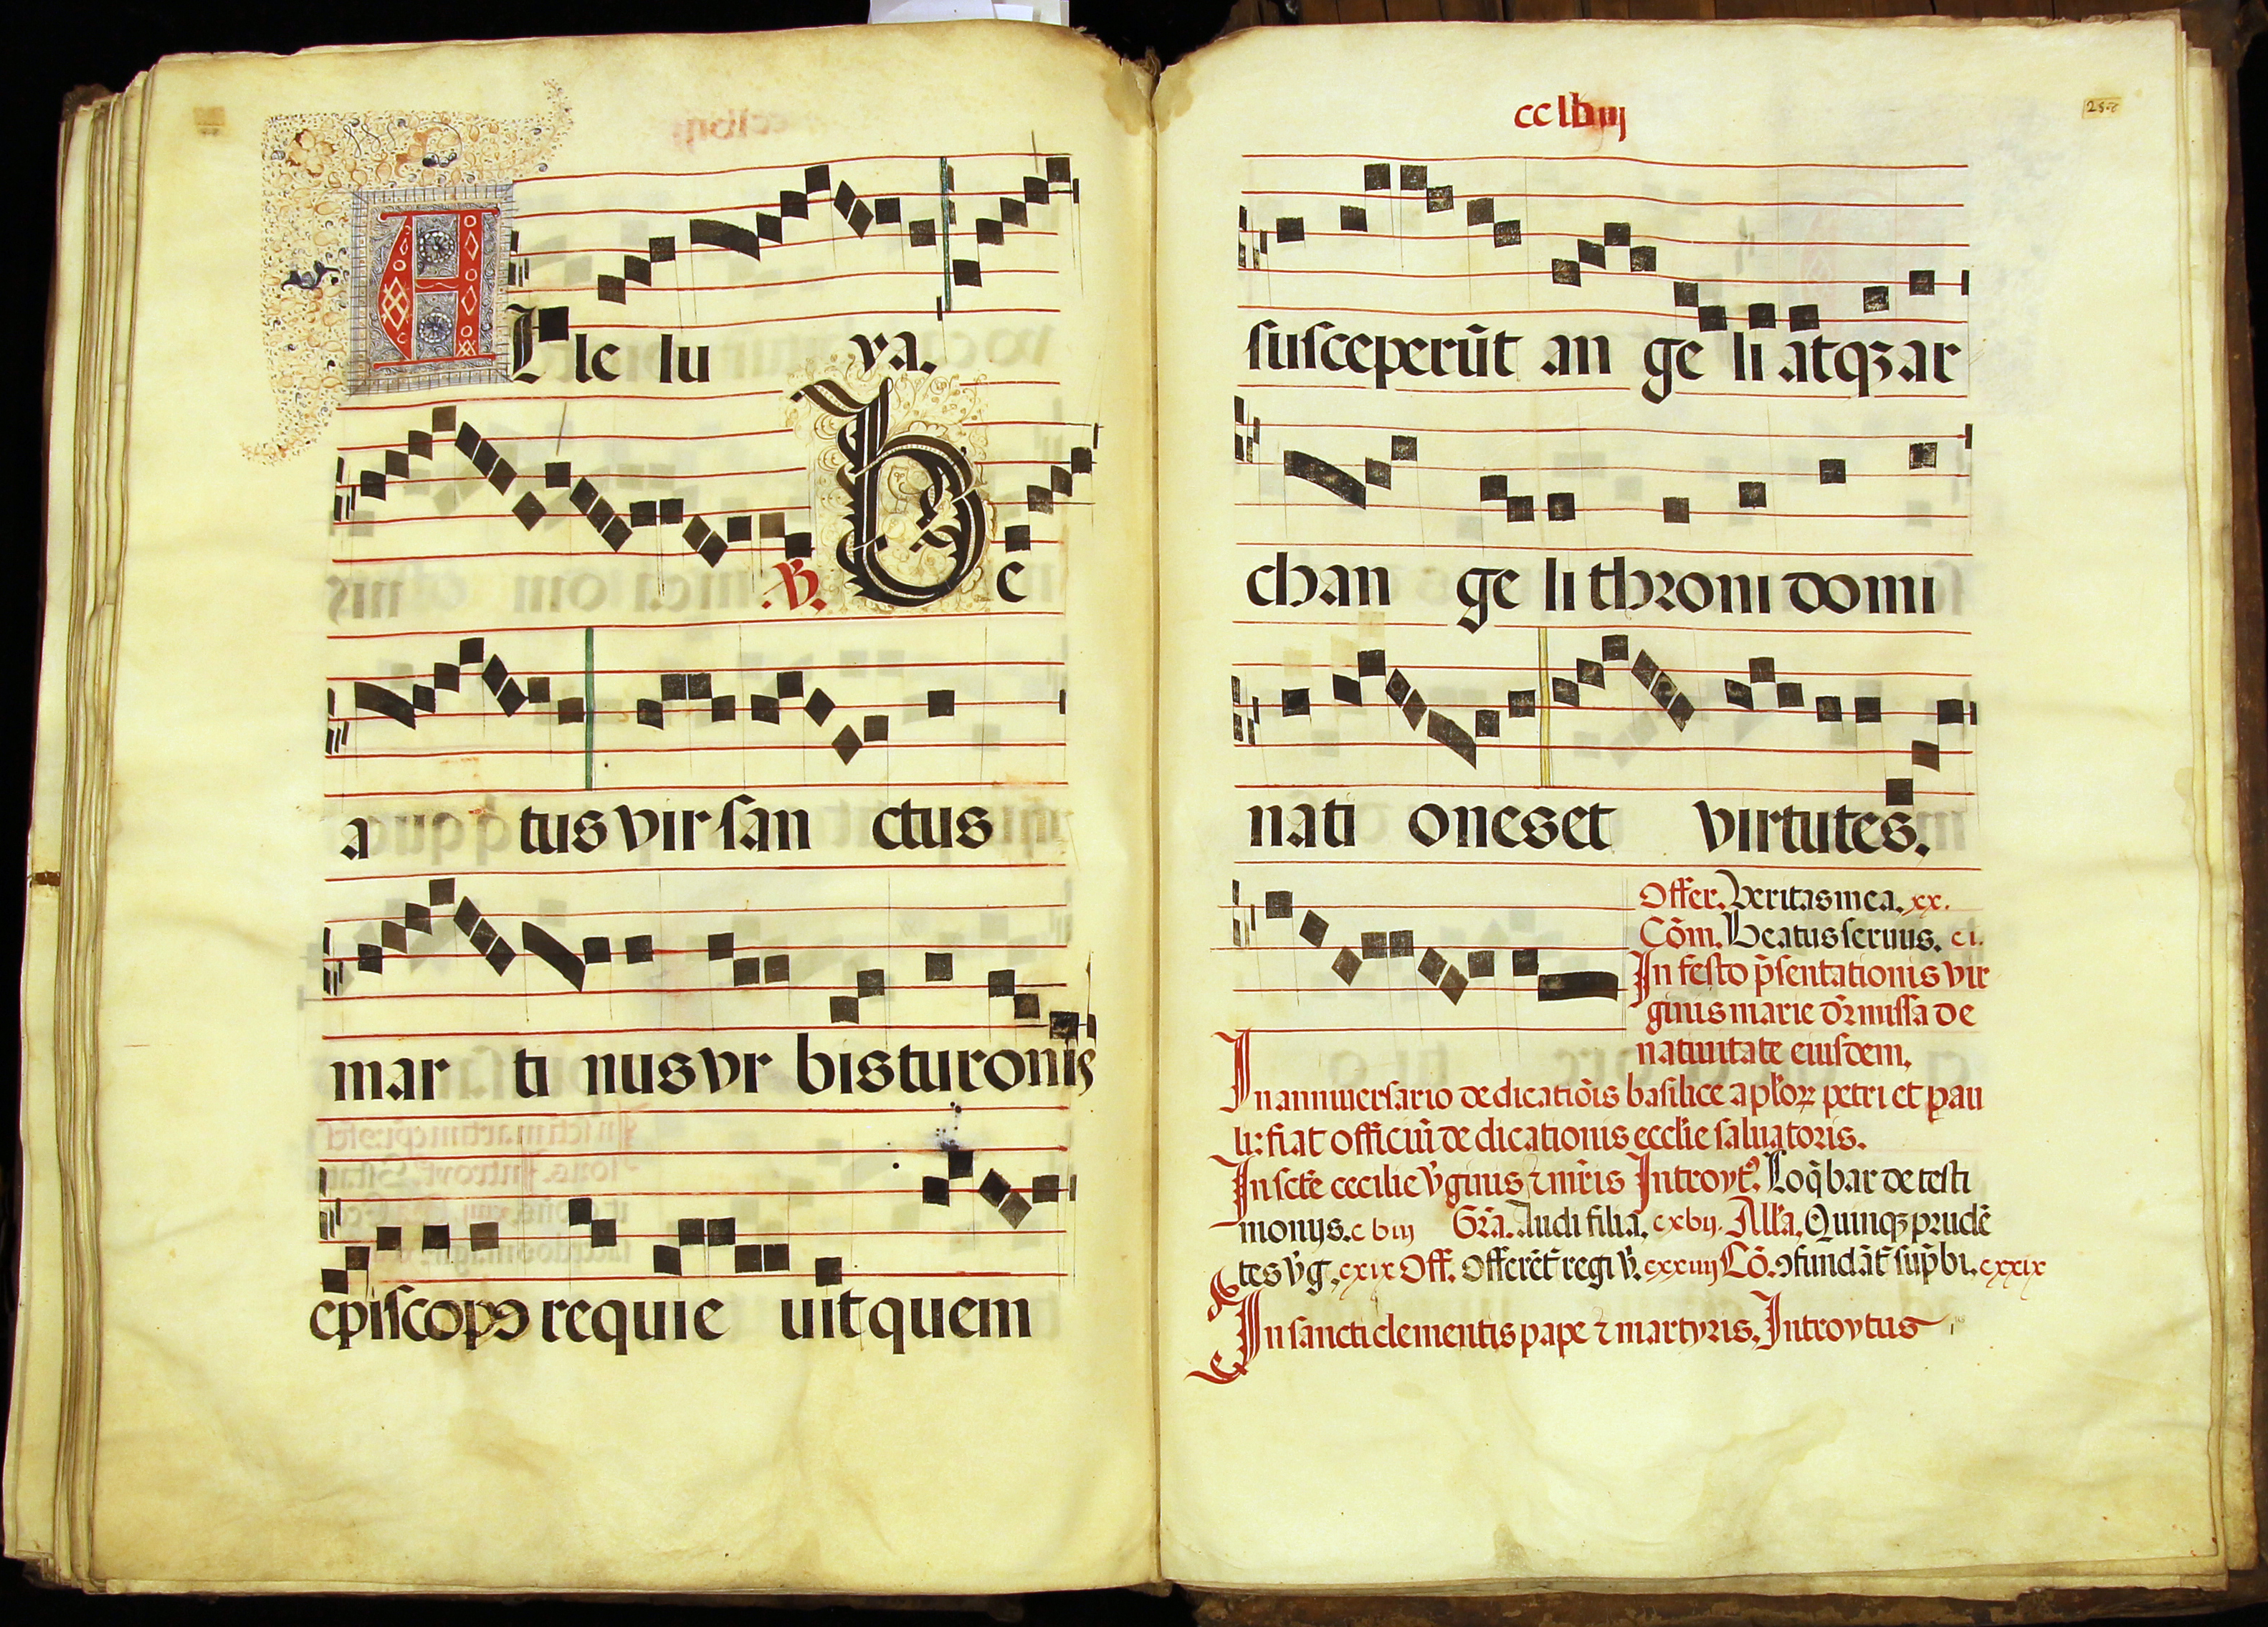 ALle lu ya.
℣. Be
a tus vir san ctus
mar ti nus vr bis turonis
episcopꝯ requie uit quem
susceperūt an ge li atqꝫ ar
chan ge li throni domi
nati ones et virtutes.
Offer. Veritas mea. xx.
Cōm. Beatus seruus. ci.
In festo p̄sentationis vir
ginis marie dr̄ missa de
natiuitate eiusdem.
In anniuersario dedicatiōis basilice aplōꝝ petri et pau
li: fiat officiū dedicationis ecclīe saluatoris.
In sctē cecilie v̄ginis ⁊ mr̄is Introytꝰ. Loq̄bar de testi
monijs. Gr̄a. Audi filia. cxvij. All'a. Quinqꝫ prudē
tes v̄g. cxix Off. Offerēt̄ regi v̄. cxxiiij Cō. ꝯfundāt̄ sup̄bi. cxxix
In sancti clementis pape ⁊ martyris. Introytus